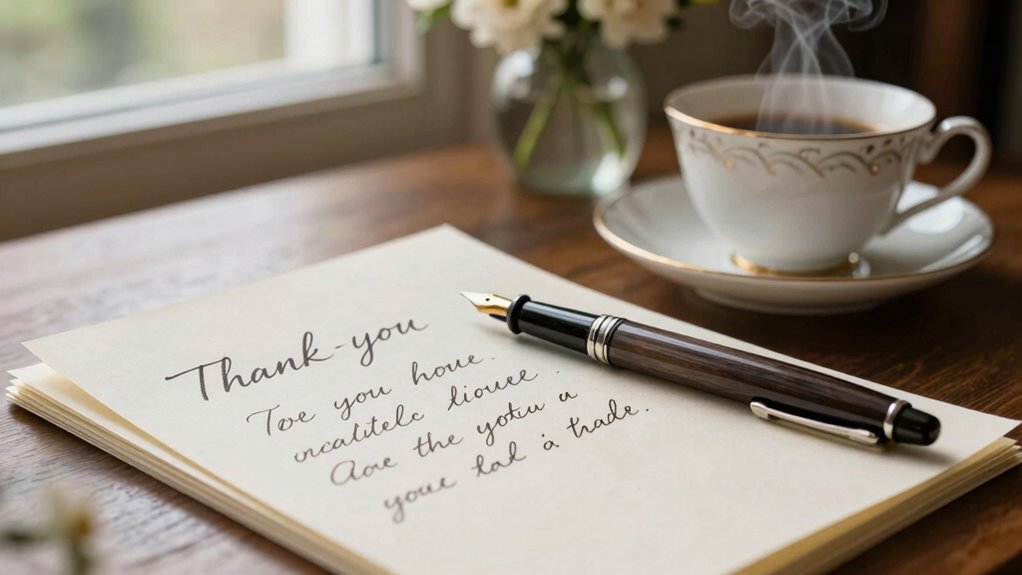 Thank-you
Toe you houe.
ucalitelc liouee.
Aoe the yotu u
youe lal à hade.